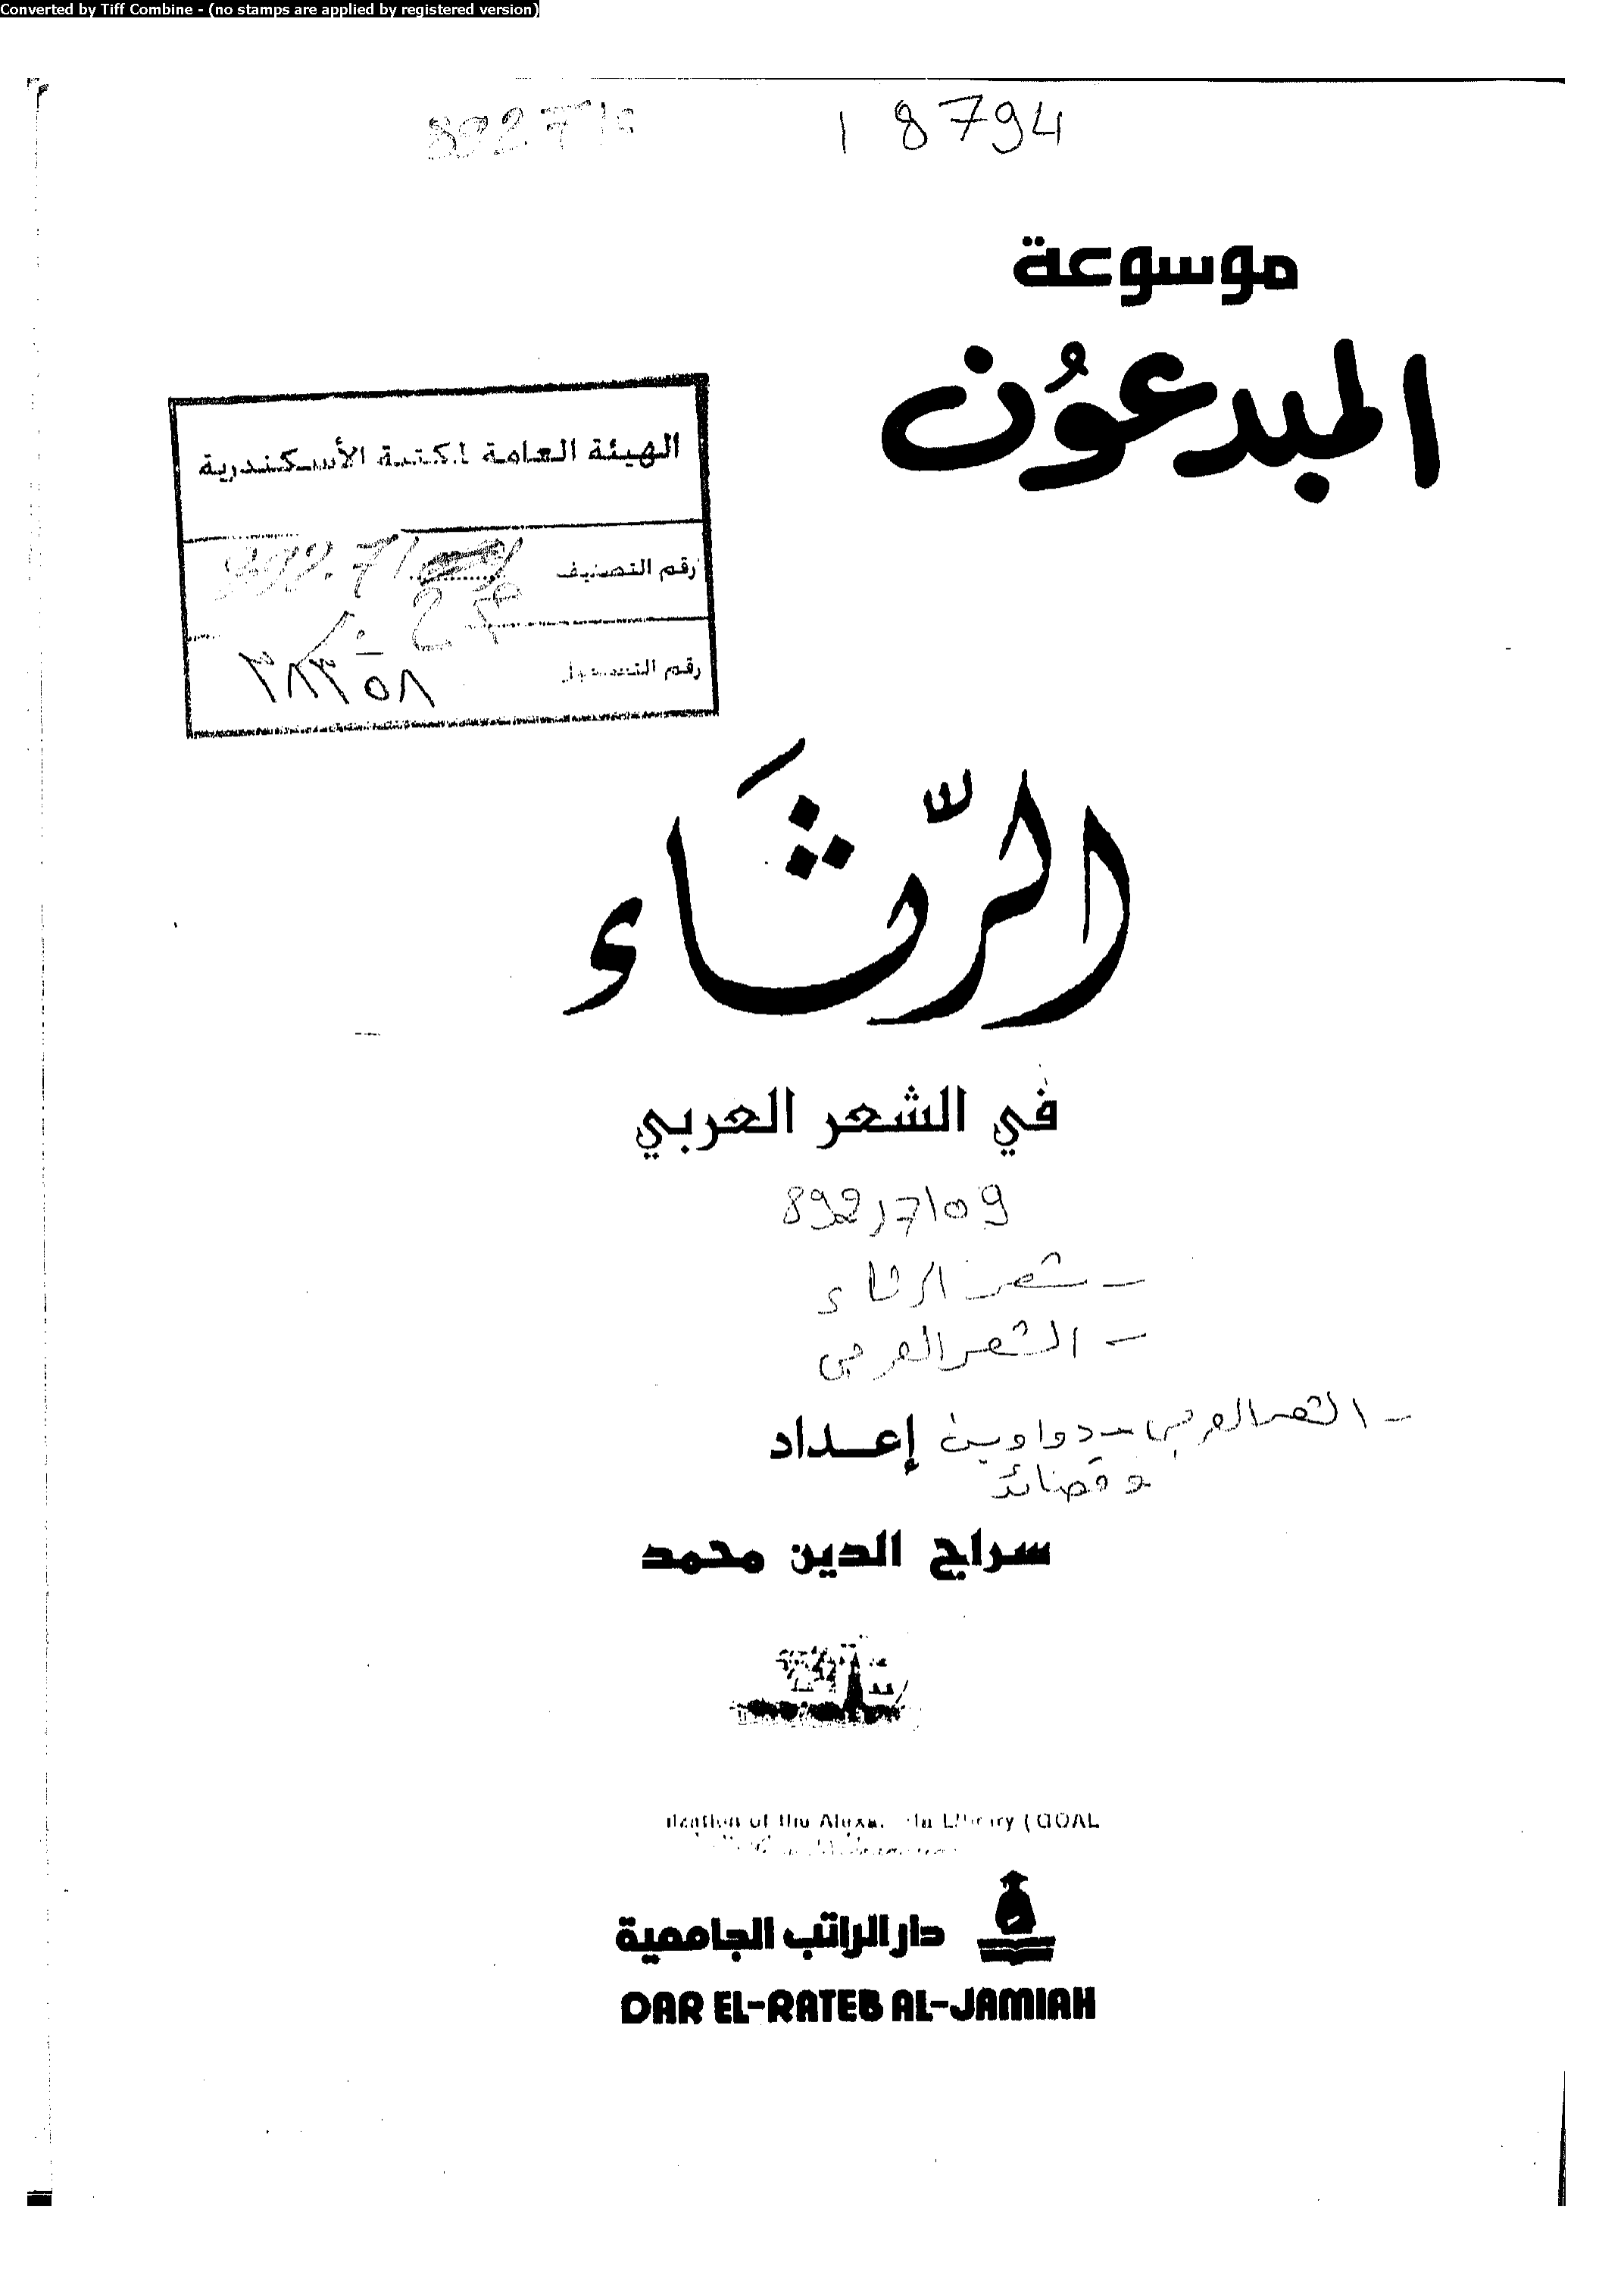 Converted by Tiff Combine - (no stamps are applied by registered version)
18794
موسوعة
المبدعُون
الهيئة العامة لمكتبة الأسكندرية
رقم التصنيف
رقم التسجيل
٣٨٣٥٨
الرّثَاء
في الشعر العربي
892,7109
- شعر الرثاء
- الشعر العربي
- الشعر العربي - دواوين
و قصائد
إعــداد
سراج الدين محمد
of the Library (GOAL
دار الراتب الجامعية
DAR EL-RATEB AL-JAMIAH